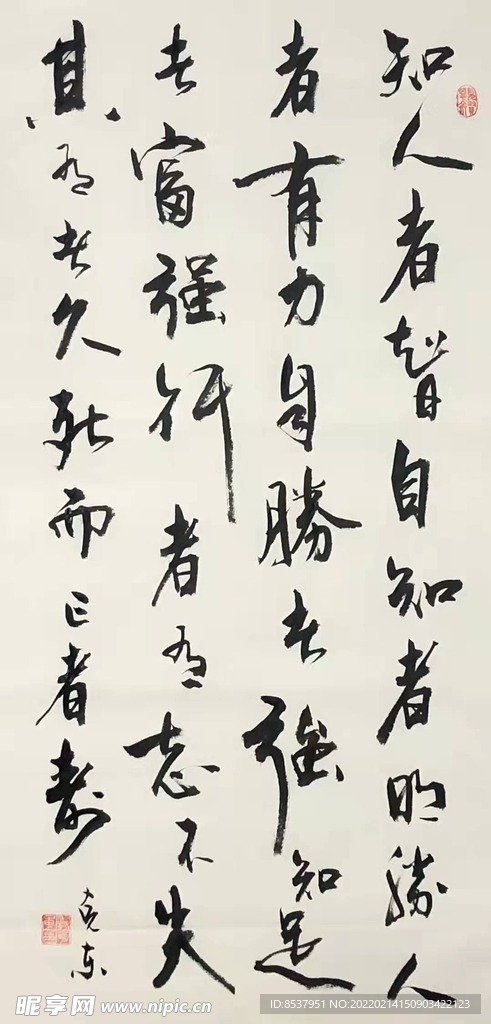 知人者智自知者明勝人
者有力自勝者強知足
者富強行者有志不失
其所者久死而亡者壽
克东
昵享网 www.nipic.cn
ID:8537951 NO:20220214150903422123